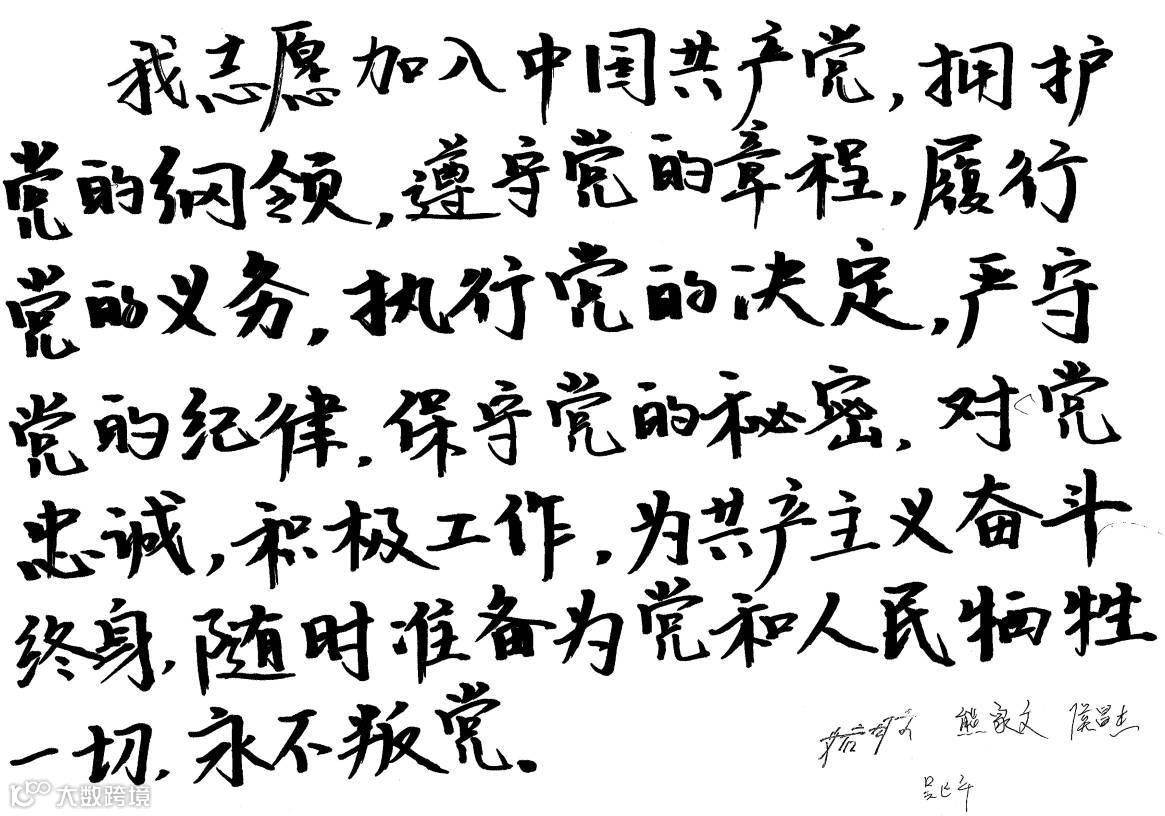 我志愿加入中国共产党，拥护
党的纲领，遵守党的章程，履行
党的义务，执行党的决定，严守
党的纪律，保守党的秘密，对党
忠诚，积极工作，为共产主义奋斗
终身，随时准备为党和人民牺牲
一切，永不叛党。
熊家文 侯昌杰
大数跨境